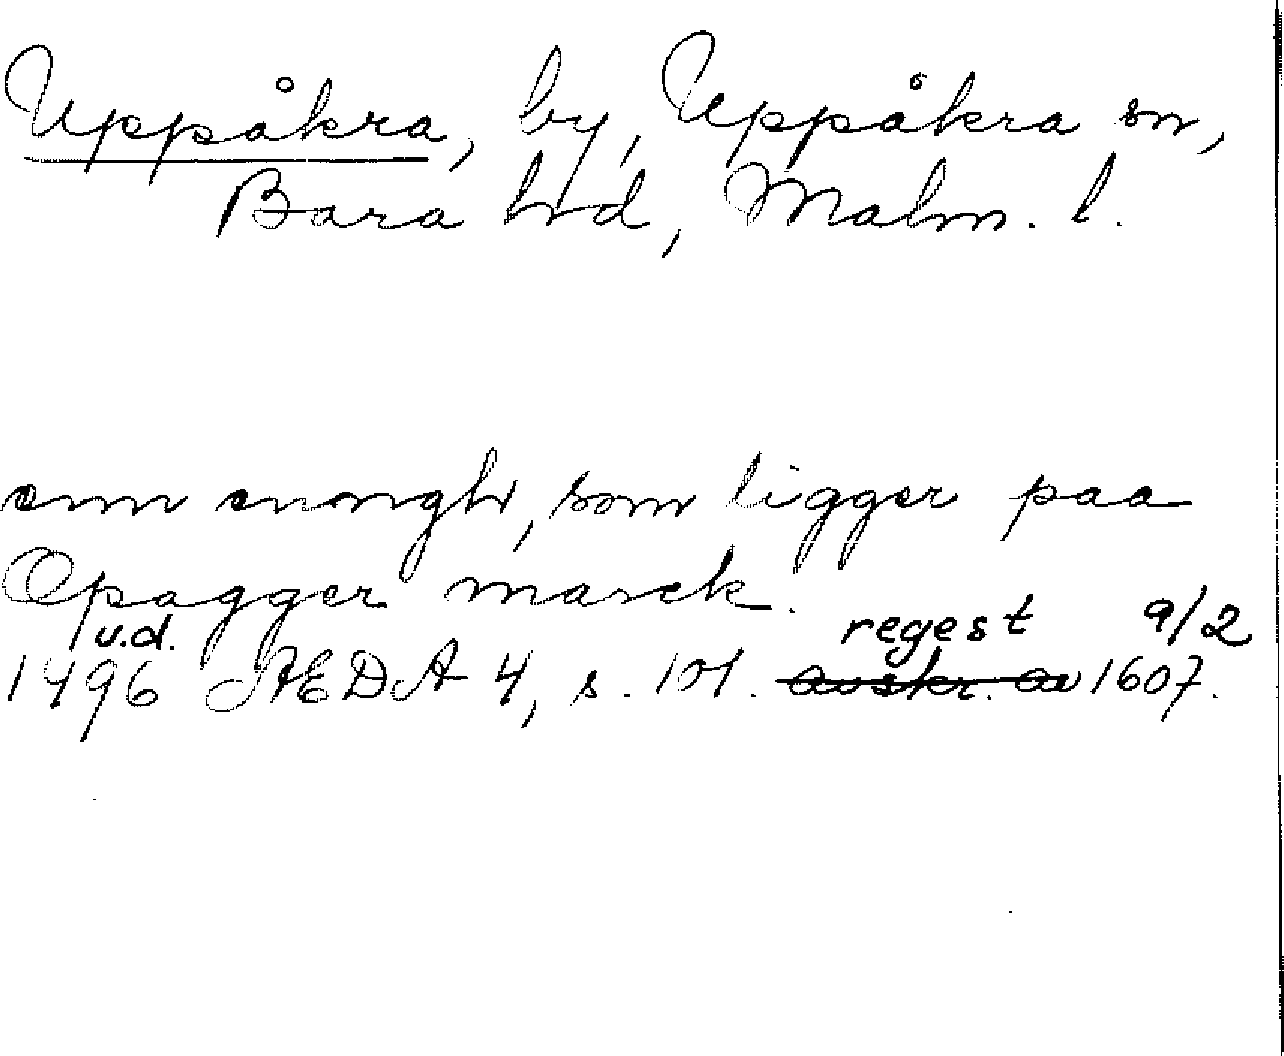 Uppåkra, by, Uppåkra sn,
Bara hd, Malm. l.
enn enongh, som ligger paa
Opagger marck.
u.d. regest 9/2
1496 ÆDA 4, s. 101. avskr. av 1607.